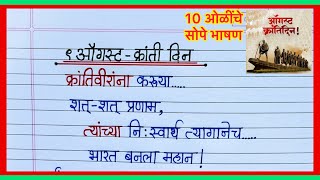 10 ओळींचे
सोपे भाषण
ऑगस्ट
क्रांतिदिन!
९ ऑगस्ट - क्रांती दिन
क्रांतिवीरांना करूया.....
शत्-शत् प्रणाम,
त्यांच्या निःस्वार्थ त्यागानेच.....
भारत बनला महान!